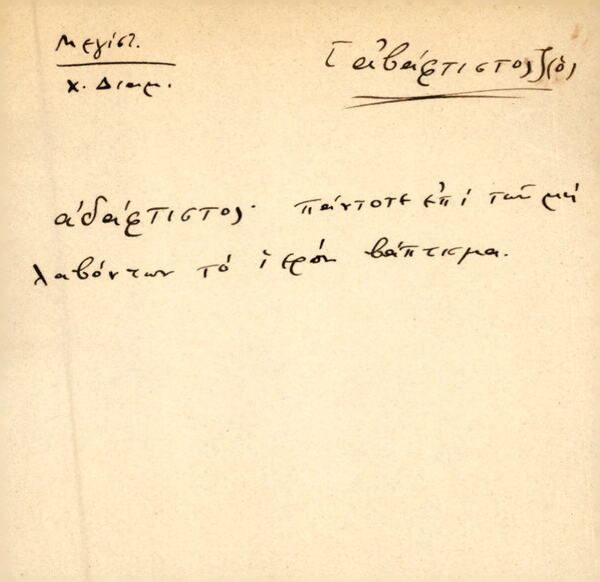 Μεγίστ.
Χ. Διαμ.
[ἀβάφτιστος] (ὁ)
ἀβάφτιστος· πάντοτε ἐπὶ τῶν μὴ
λαβόντων τὸ ἱερόν βάπτισμα.